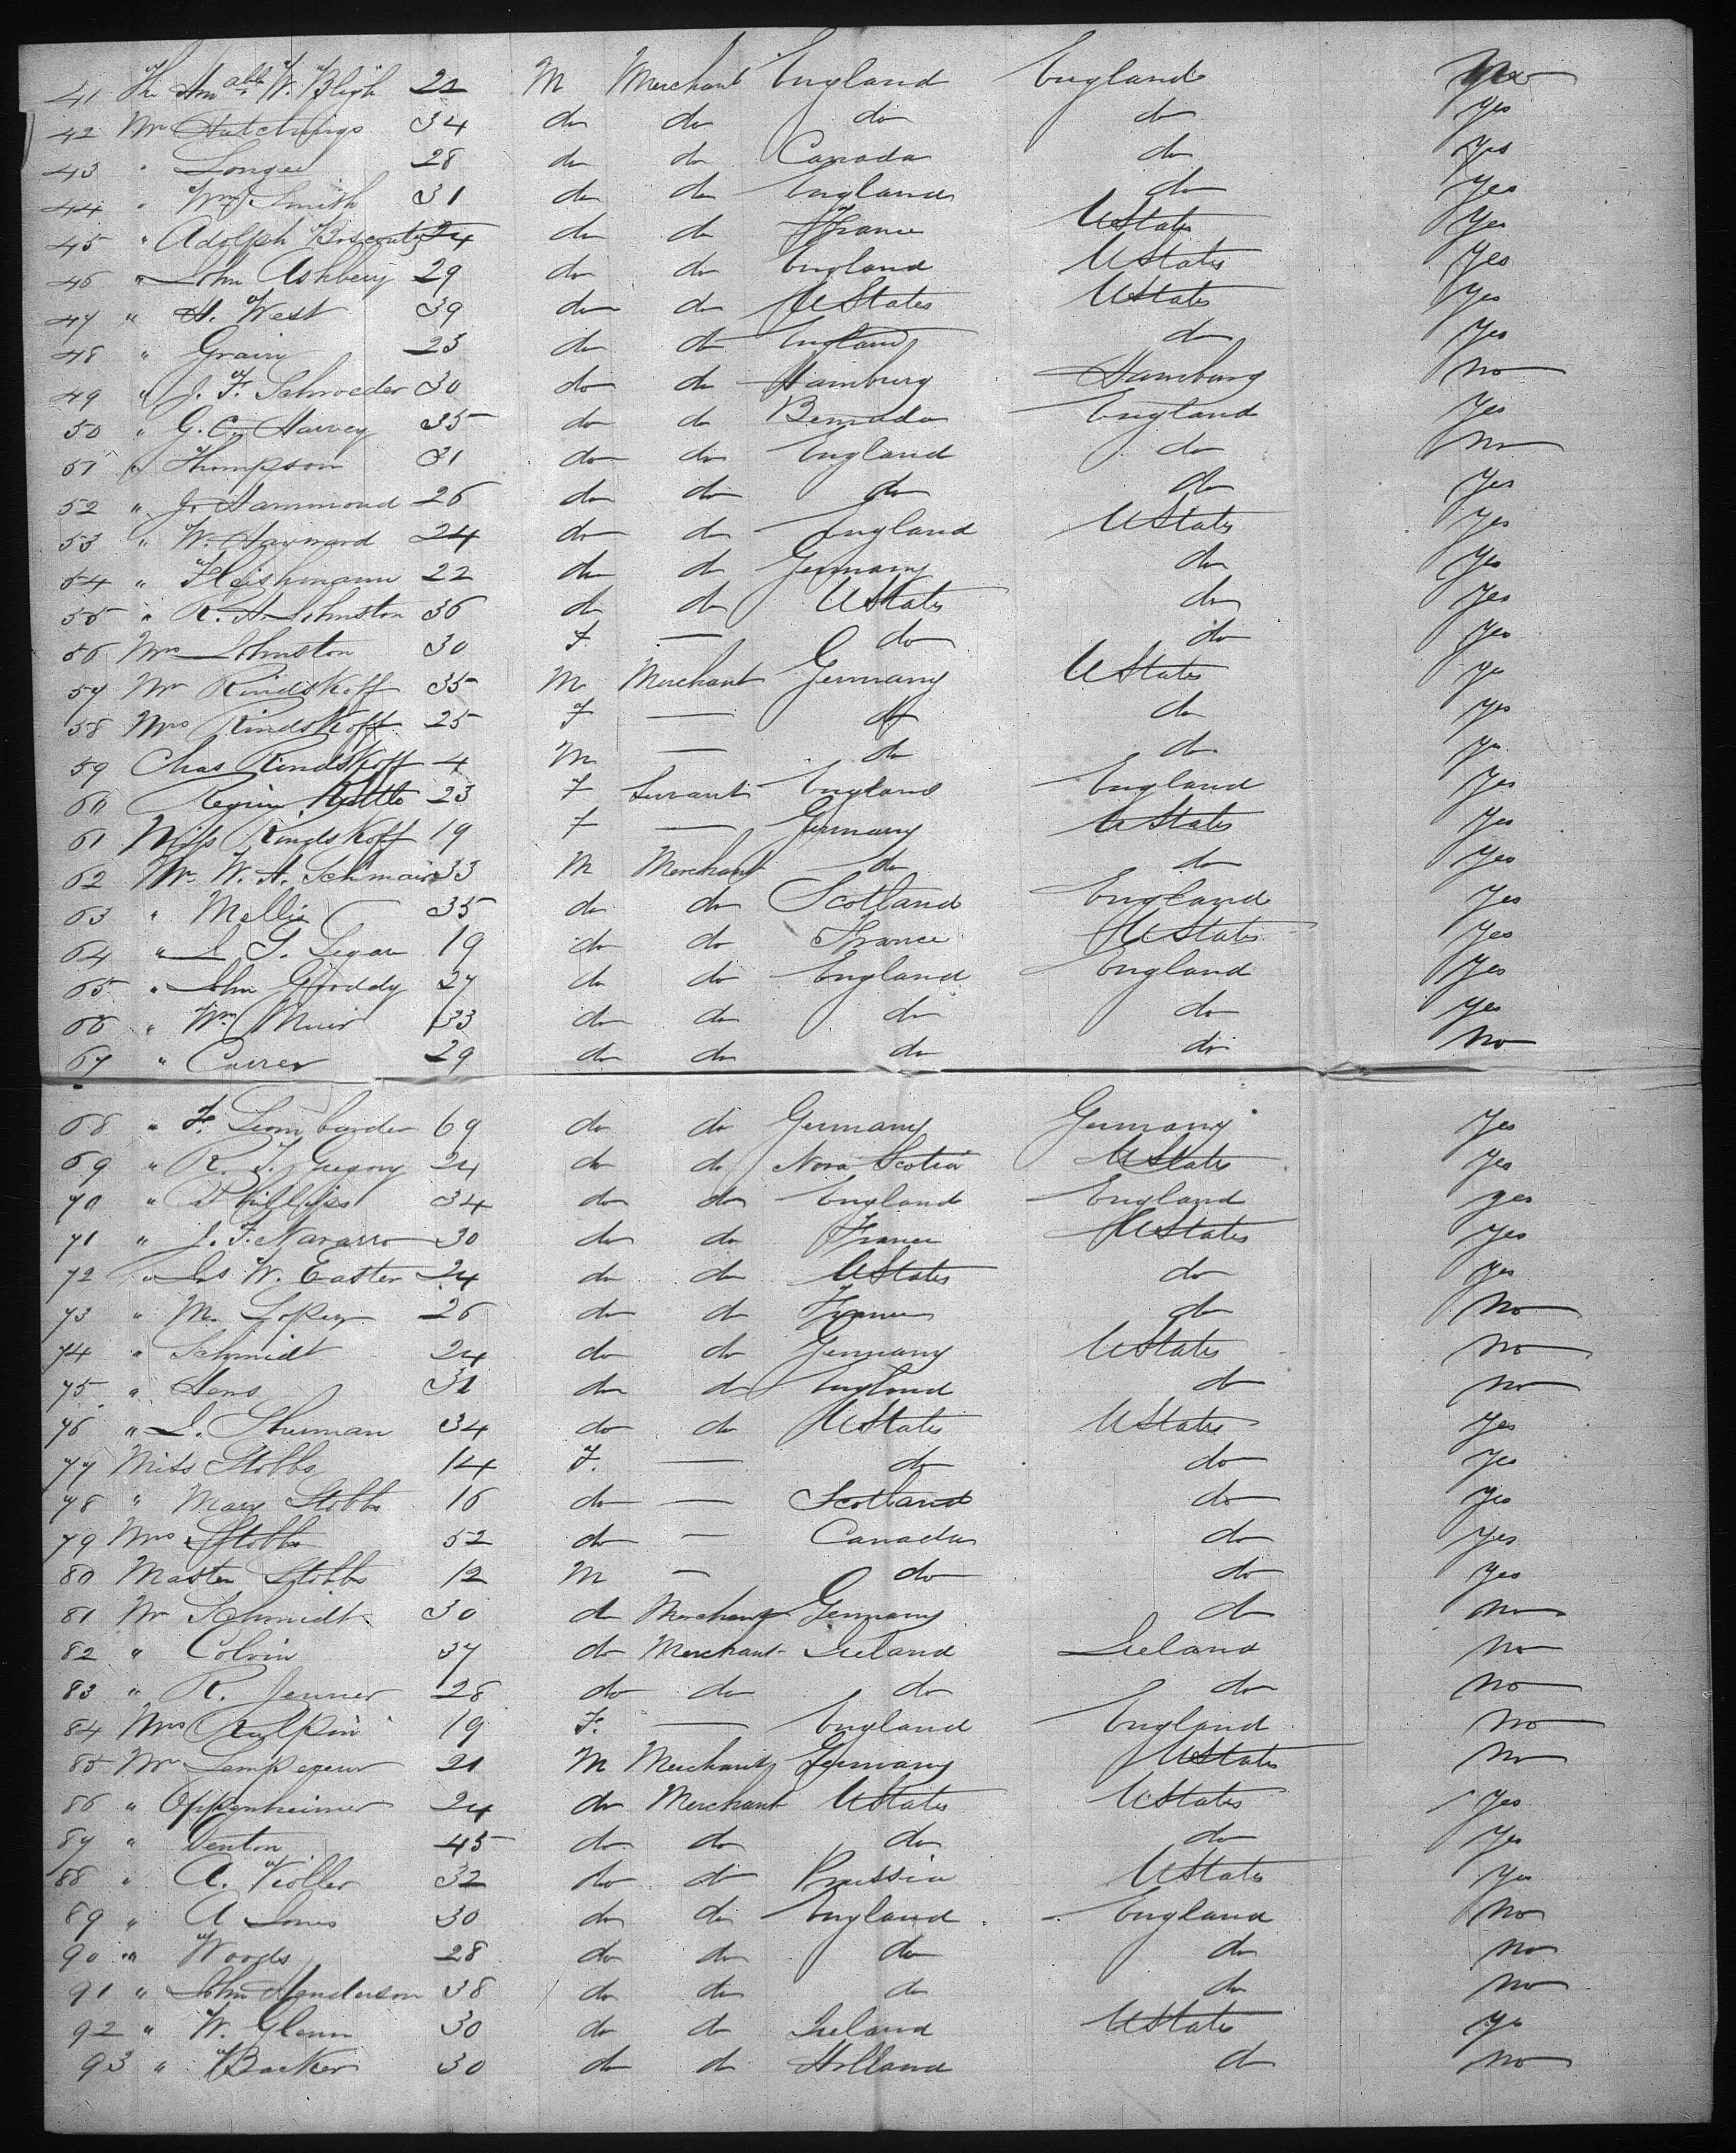 41 The Honable W. Bligh 22 M Merchant England England
42 Mr Hutchings 34 do do do do yes
43 " 28 do do Canada do yes
44 " Wm Smith 31 do do England do yes
45 " Adolph 24 do do France UStates yes
46 " John Ashbery 29 do do England UStates yes
47 " H. West 39 do do UStates UStates yes
48 " Grain 23 do do England do yes
49 " J. F. Schroeder 30 do do Hamburg Hamburg no
50 " G. C. Harvey 35 do do Bermuda England yes
51 " Thompson 31 do do England do no
52 " J. Hammond 26 do do do do yes
53 " W. Hayward 24 do do England UStates yes
54 " Fleishmann 22 do do Germany do yes
55 " R. H. Johnston 36 do do UStates do yes
56 Mrs Johnston 30 F. — do do yes
57 Mr Rindskoff 35 M Merchant Germany UStates yes
58 Mrs Rindskoff 25 F — do do yes
59 Chas Rindskoff 4 M — do do yes
60 23 F Servant England England yes
61 Miss Rindskoff 19 F — Germany UStates yes
62 Mr. W. A. 33 M Merchant do do yes
63 " Mellis 35 do do Scotland England yes
64 " 19 do do France UStates yes
65 " John Gooddy 27 do do England England yes
66 " Wm Muir 33 do do do do yes
67 " Carrer 29 do do do do no
68 " F. 69 do do Germany Germany yes
69 " R. J. Gregory 24 do do Nova Scotia UStates yes
70 " Phillips 34 do do England England yes
71 " J. F. Navarro 30 do do France UStates yes
72 " Js W. Easter 24 do do UStates do yes
73 " M. 26 do do France do no
74 " Schmidt 24 do do Germany UStates no
75 " Hens 31 do do England do no
76 " 34 do do UStates UStates yes
77 Miss Stobbs 14 F. — do do yes
78 " Mary Stobbs 16 do — Scotland do yes
79 Mrs Stobbs 52 do — Canada do yes
80 Master Stobbs 12 M — do do yes
81 Mr Schmidt 30 do Merchant Germany do no
82 " Colvin 37 do Merchant Ireland Ireland no
83 " R. Jenner 28 do do do do no
84 Mrs 19 F. — England England no
85 Mr Lempereur 21 M Merchant Germany UStates no
86 " Oppenheimer 24 do Merchant UStates UStates yes
87 " Denton 45 do do do do yes
88 " A. 32 do do Prussia UStates yes
89 " A Jones 30 do do England England no
90 " Woods 28 do do do do no
91 " John Henderson 38 do do do do no
92 " W. Glenn 30 do do Ireland UStates yes
93 " Barker 30 do do Holland do no